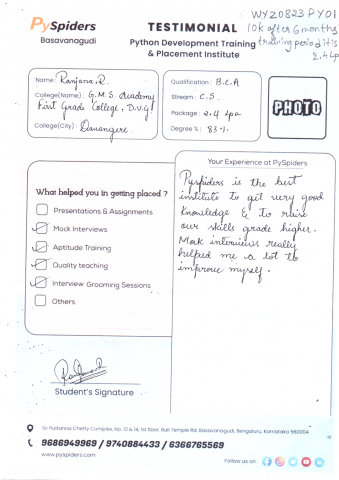 PySpiders
Basavanagudi
TESTIMONIAL
Python Development Training
& Placement Institute
WY20823PY01
10k after 6 months
training period it is
2.4 Lp
Name: Ranjana.R.
College(Name): G.M.S. Academy
First Grade College, D.V.G
College(City): Davangere
Qualification: B.C.A
Stream: C.S.
Package: 2.4 lpa
Degree %: 83%
PHOTO
What helped you in getting placed ?
Presentations & Assignments
Mock Interviews
Aptitude Training
Quality teaching
Interview Grooming Sessions
Others
Your Experience at PySpiders
Pyspiders is the best
institute to get very good
knowledge & to raise
our skills grade higher.
Mock interviews really
helped me a lot to
improve myself.
Student's Signature
Sir Puttanna Chetty Complex, No. 13 & 14, 1st floor, Bull Temple Rd, Basavanagudi, Bengaluru, Karnataka 560004
9686949969 / 9740884433 / 6366765569
www.pyspiders.com
Follow us on